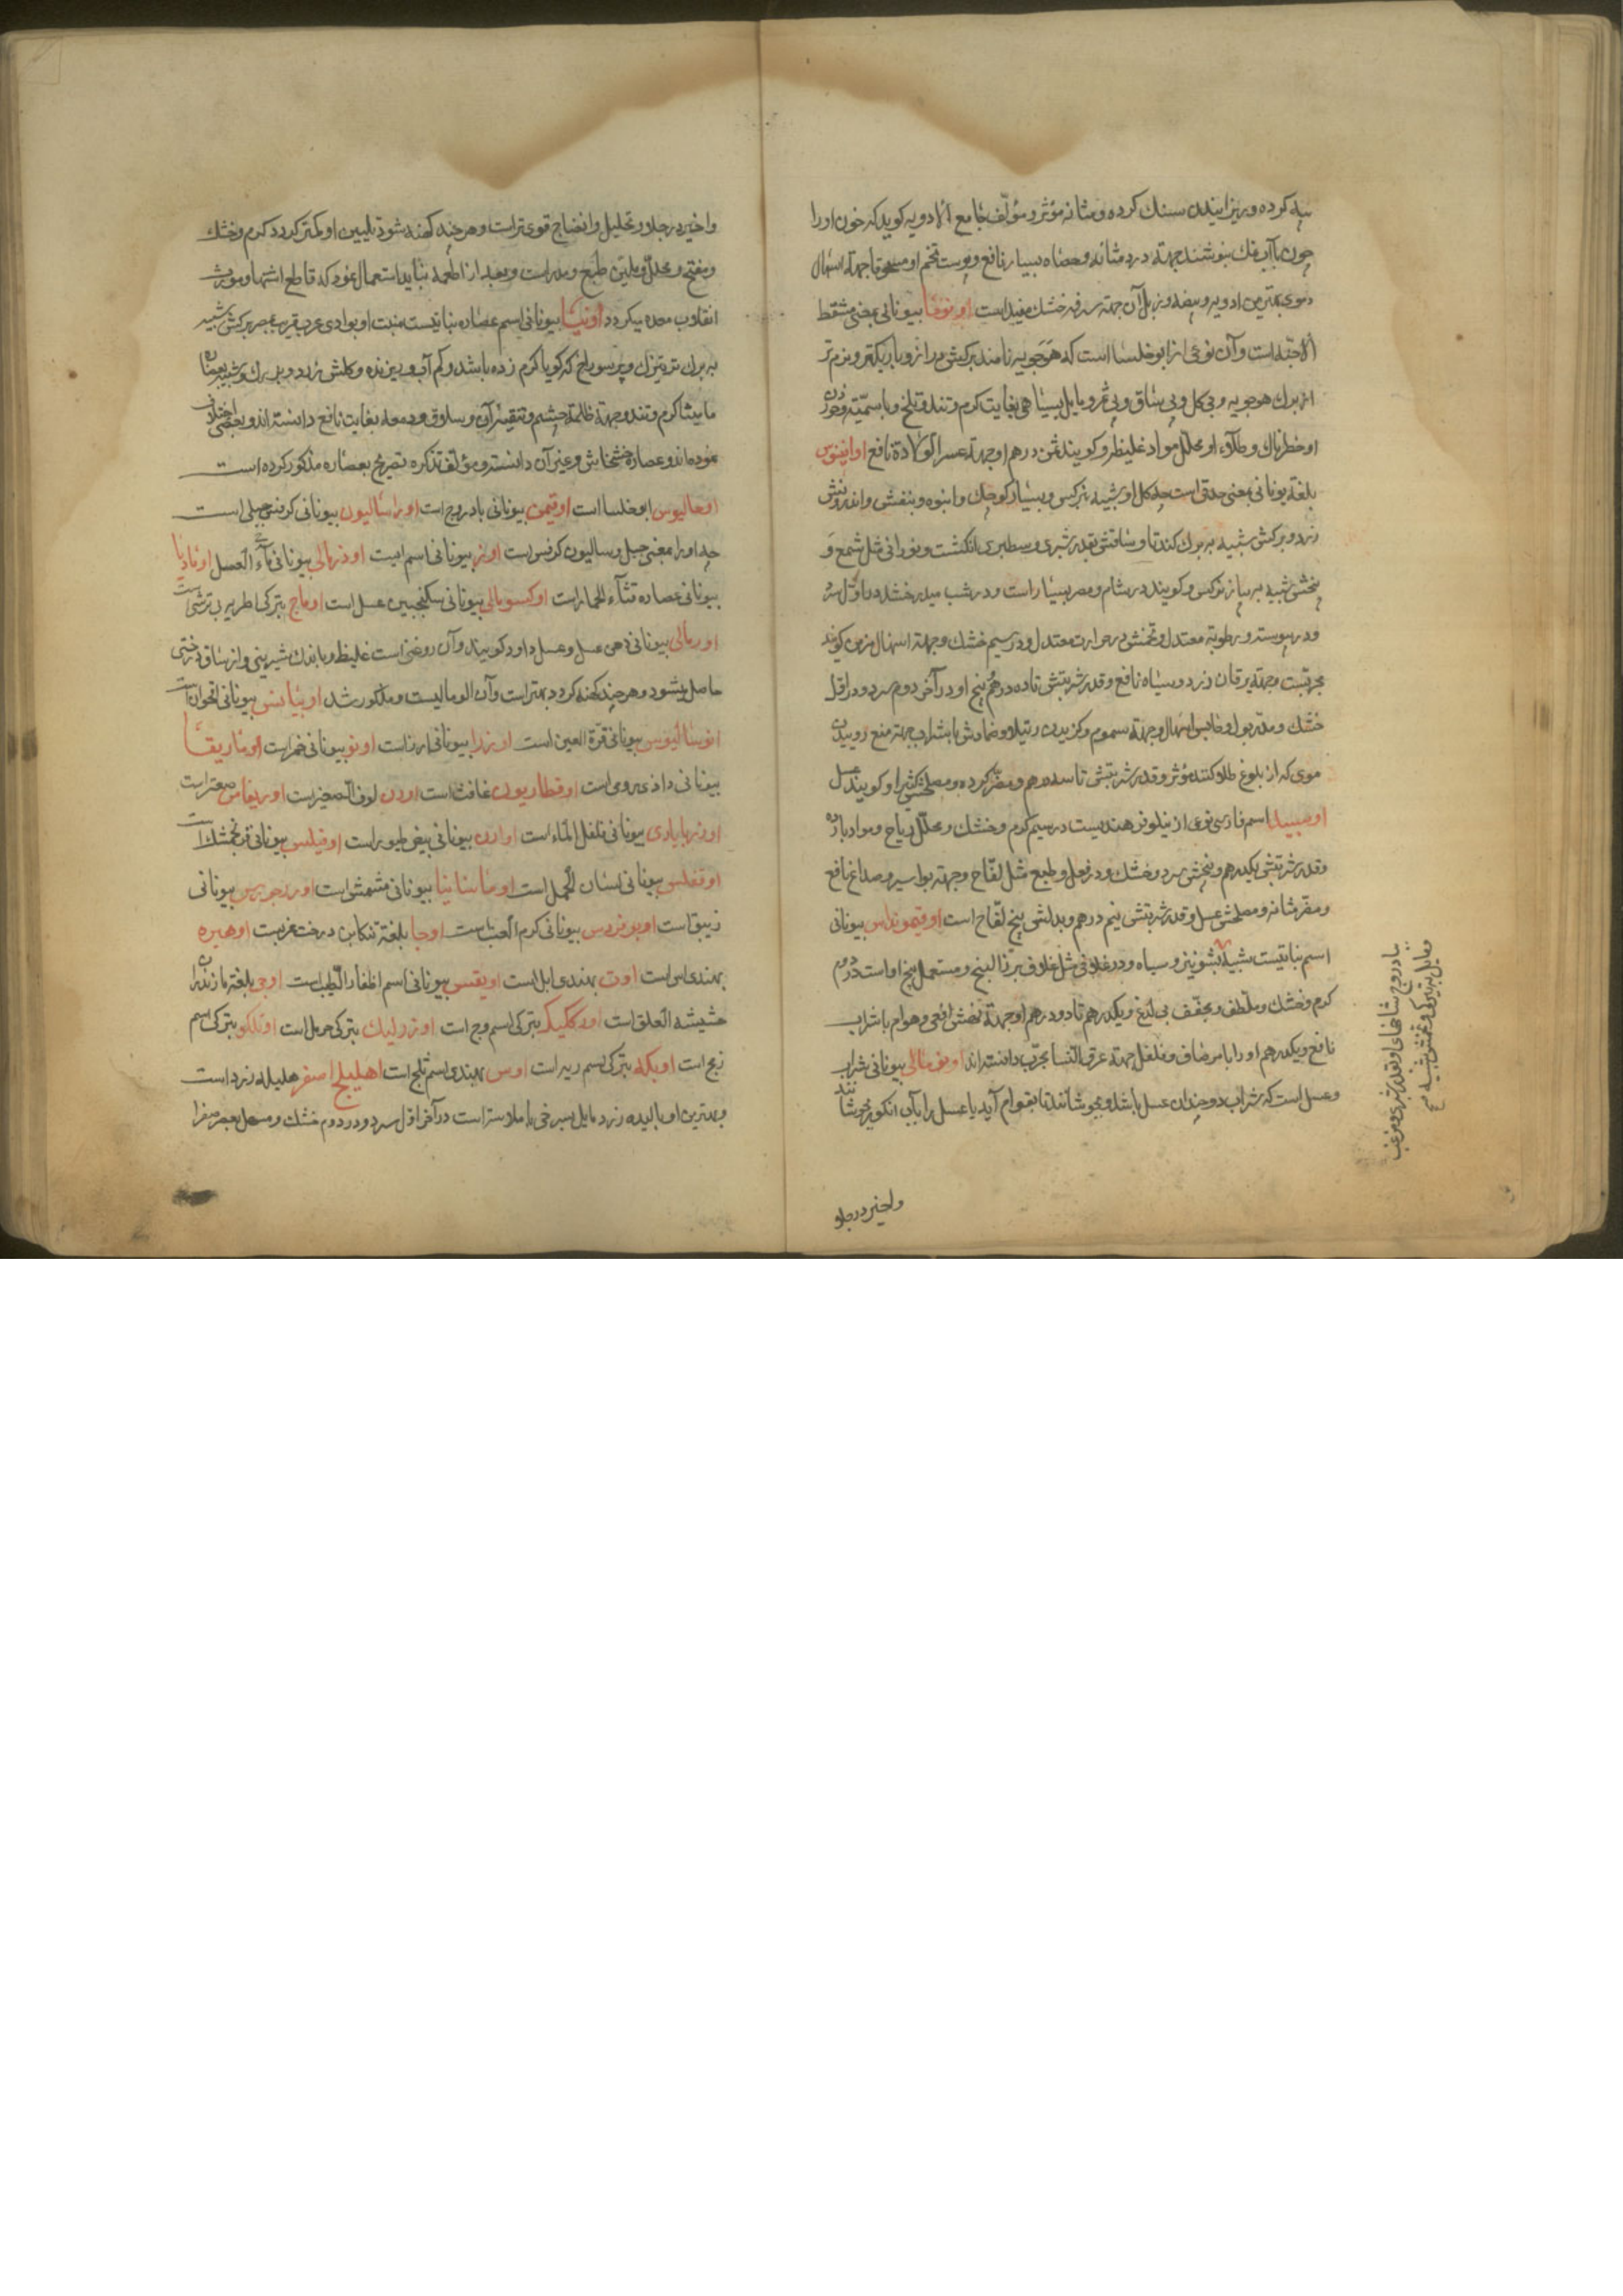 پیه کرده و ریزانیدن سنک کرده و مثانه مؤثر و مؤلف جامع الادویه کوید که خون او را
چون با آب خنک بنوشند جهته درد مثانه و حصاة بسیار نافع و پوست تخم او مسحوقا جهته اسهال
دموی بهترین ادویه و بیضه و زبل آن جهته سرفه خشک مفید است اونوما بیونانی بمعنی مسقط
الاجنه است و آن نوعی از ابوخلسا است که هوجویه نامند برکش دراز و باریکتر و نرم تر
از برک هوجویه و بی کل و بی ساق و بی ثمر و مایل بسیاهی بغایت کرم و تند و تلخ و با سمیته و خوردن
او خطرناک و طلاء او محلل مواد غلیظه و کویند ثمن درهم او جهته عسر الولادة نافع اوافینوس
بلغة یونانی بمعنی حدقی است چه کل او شبیه بنرکس و بسیار کوچک و انبوه و بنفش و اندرونش
زرد و برکش شبیه ببرک کندنا و ساقش بقدر شبری و سطبری انکشت و نورانی مثل شمع و
بیخش شبیه به پیاز نرکس و کویند در شام و مصر بسیار است و در شب میدرخشد در اول سرد
و در یبوسته و رطوبة معتدل و تخمش در حرارت معتدل و در سیم خشک و جهته اسهال مزمن کویند
مجربست و جهته یرقان زرد و سیاه نافع و قدر شربتش تا ده درهم و بیخ او در آخر دوم سرد و در اول
خشک و مدر بول و حابس اسهال و جهته سموم و کزیدن رتیلا و ضمادش با شراب جهته منع روییدن
موی که از بلوغ طلا کنند مؤثر و قدر شربتش تا سه درهم و مضر کرده و مصلحش کثیرا و کویند عسل
اومبیدا اسم فارسی نوعی از نیلوفر هندیست در سیم کرم و خشک و محلل ریاح و مواد بارده
و قدر شربتش یکدرهم و بیخش سرد و خشک و در فعل و طبع مثل لفاح و جهته بواسیر و صداع نافع
و مضر مثانه و مصلحش عسل و قدر شربتش نیم درهم و بدلش بیخ لفاح است اوقیموئداس بیونانی
اسم نباتیست شبیه بشونیز و سیاه و در غلافی مثل غلاف بزر البنج و مستعمل بیخ او است در دوم
کرم و خشک و ملطف و مجفف بی لذع و یکدرهم تا دو درهم او جهته نهش افعی و هوام با شراب
نافع و یکدرهم او را با مر صاف و فلفل جهته عرق النسا مجرب دانسته اند اونومالی بیونانی شراب
و عسل است که شراب دو چندان عسل باشد و بجوشانند تا بقوام آید یا عسل را با آب انکور بجوشانند
بادروج شاخهای او بقدر شبری و مزغب
و اخیر در جلا
و اخیر در جلا و تحلیل و انضاج قوی تر است و هر چند کهنه شود تلیین او کمتر کردد کرم و خشک
و مفتح و محلل و ملین طبع و مدر است و بعد از اطعمه نباید استعمال نمود که قاطع اشتها و مورث
انقلاب معده میکردد اونیا بیونانی اسم عصاره نباتیست منبت او بوادی عرب قریب بمصر برکش شبیه
به برک ترتیزک و پر سوراخ که کویا کرم زده باشد و کم آب و ریزنده و کلش زرد و بزرک و شبیه بعصاره
مامیثا کرم و تند و جهته ظلمة چشم و تنقیه آن و سلاق و دمعه بغایت نافع دانسته اند و بعضی اختلاف
نموده اند و عصاره خشخاش و غیر آن دانسته و مؤلف تذکره تصریح بعصاره مذکور کرده است
اوحالیوس ابوخلسا است اوقیمن بیونانی بادروج است اوراسالیون بیونانی کرفس جبلی است
چه اورا بمعنی جبل و سالیون کرفس است اونز بیونانی اسم اسیت اودرمالی بیونانی ماء العسل اونادیا
بیونانی عصاره قثاء الحمار است اوکسومالی بیونانی سکنجبین عسل است اوماج بترکی اطریه بی ترشی است
اورمالی بیونانی دهن عسل و عسل داود کویند و آن روغنی است غلیظ و با اندک شیرینی و از ساق درختی
حاصل میشود و هر چند کهنه کردد بهتر است و آن الومالیست و مذکور شد اوبیانس بیونانی اقحوان است
انوسالیوس بیونانی قرة العین است اورزا بیونانی ارز است اونو بیونانی خمر است اوفاریقا
بیونانی داذی رومی است اوفطاریون غافث است اورن لوف الصغیر است اوریغاس صعتر است
اودرباپاری بیونانی فلفل الماء است اوارن بیونانی بیض طیور است اوقیلس بیونانی فرنجمشک است
اوقغلس بیونانی لسان الحمل است اوماسانیا بیونانی مشمش است اوردجربس بیونانی
زیبق است اوبوفردس بیونانی کرم العنب است اوجا بلغة تنکابن درخت غربست اوهیره
بهندی اس است اوت بهندی ابل است اویقس بیونانی اسم اظفار الطیب است اوجی بلغة مازندران
حشیشة العلق است اودکلیک بترکی اسم وج است اوزرلیک بترکی حرمل است اوتلکو بترکی اسم
زبج است اوبکه بترکی اسم ریه است اوس بهندی اسم ثلج است اهلیلج اصفر هلیله زرد است
و بهترین او بالیده زرد مایل بسرخی با ملاست است در آخر اول سرد و در دوم خشک و مسهل صفرا